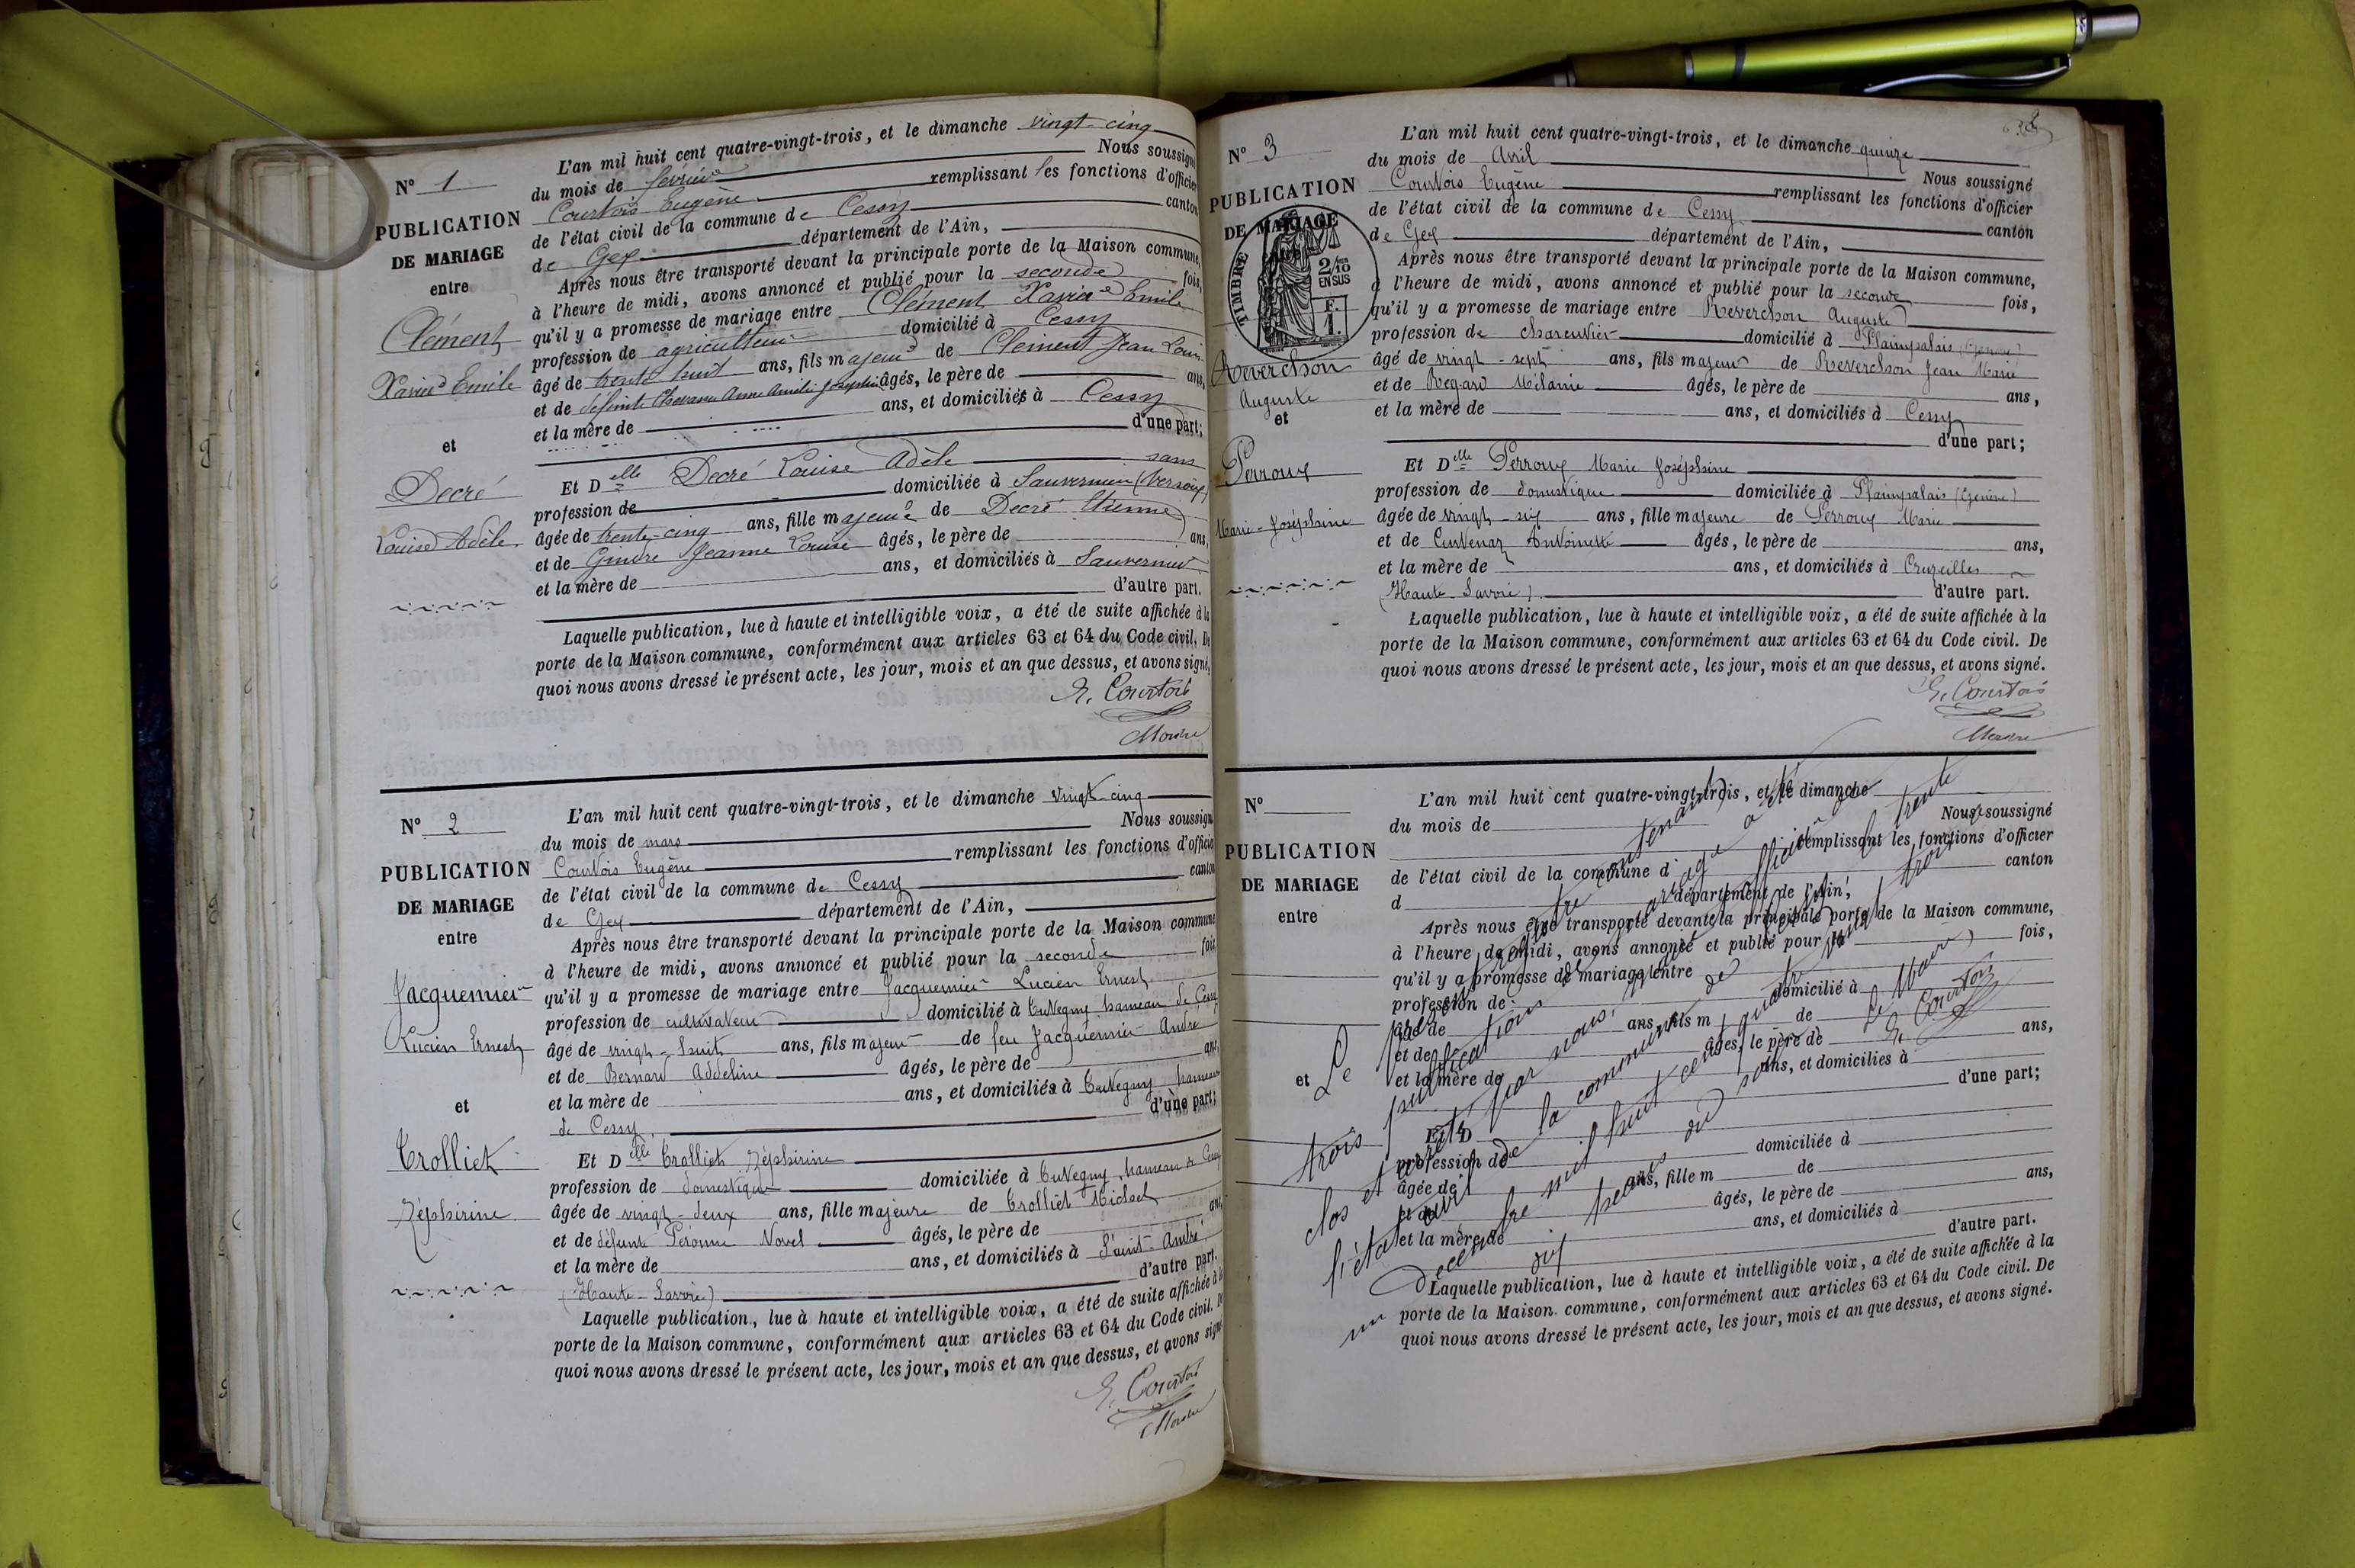 N° 1
PUBLICATION
DE MARIAGE
entre
Clément
Xavier Emile
et
Decré
Louise Adèle
L'an mil huit cent quatre-vingt-trois, et le dimanche vingt-cinq
du mois de février Nous soussigné
Courtois Eugène remplissant les fonctions d'officier
de l'état civil de la commune de Cessy canton
de Gex département de l'Ain,
Après nous être transporté devant la principale porte de la Maison commune,
à l'heure de midi, avons annoncé et publié pour la seconde fois,
qu'il y a promesse de mariage entre Clément Xavier Emile
profession de agriculteur domicilié à Cessy
âgé de trente huit ans, fils majeur de Clément Jean Louis
et de défunte Anne Amélie Joséphine âgés, le père de ans,
et la mère de ans, et domiciliés à Cessy
d'une part;
Et Delle Decré Louise Adèle sans
profession de domiciliée à Sauvernier (Versoix)
âgée de trente-cinq ans, fille majeure de Decré Etienne
et de Gindre Jeanne Louise âgés, le père de ans,
et la mère de ans, et domiciliés à Sauvernier
d'autre part.
Laquelle publication, lue à haute et intelligible voix, a été de suite affichée à la
porte de la Maison commune, conformément aux articles 63 et 64 du Code civil. De
quoi nous avons dressé le présent acte, les jour, mois et an que dessus, et avons signé.
E. Courtois
N° 2
PUBLICATION
DE MARIAGE
entre
Jacquemier
Lucien Ernest
et
Trolliet
Zéphirine
L'an mil huit cent quatre-vingt-trois, et le dimanche vingt-cinq
du mois de mars Nous soussigné
Courtois Eugène remplissant les fonctions d'officier
de l'état civil de la commune de Cessy canton
de Gex département de l'Ain,
Après nous être transporté devant la principale porte de la Maison commune
à l'heure de midi, avons annoncé et publié pour la seconde fois,
qu'il y a promesse de mariage entre Jacquemier Lucien Ernest
profession de cultivateur domicilié à Tutegny hameau de Cessy
âgé de vingt-huit ans, fils majeur de feu Jacquemier André
et de Bernard Addeline âgés, le père de ans,
et la mère de ans, et domiciliés à Tutegny hameau
de Cessy. d'une part;
Et Delle Trolliet Zéphirine
profession de domestique domiciliée à Tutegny, hameau de Cessy
âgée de vingt-deux ans, fille majeure de Trolliet Michel
et de défunte Péronne Novel âgés, le père de ans,
et la mère de ans, et domiciliés à Saint-André
(Haute-Savoie) d'autre part.
Laquelle publication, lue à haute et intelligible voix, a été de suite affichée à la
porte de la Maison commune, conformément aux articles 63 et 64 du Code civil. De
quoi nous avons dressé le présent acte, les jour, mois et an que dessus, et avons signé
E. Courtois
N° 3
PUBLICATION
DE MARIAGE
TIMBRE
2/10
EN SUS
F.
1.
Reverchon
Auguste
et
Perroux
Marie-Joséphine
L'an mil huit cent quatre-vingt-trois, et le dimanche quinze
du mois de Avril Nous soussigné
Courtois Eugène remplissant les fonctions d'officier
de l'état civil de la commune de Cessy canton
de Gex département de l'Ain,
Après nous être transporté devant la principale porte de la Maison commune,
à l'heure de midi, avons annoncé et publié pour la seconde fois,
qu'il y a promesse de mariage entre Reverchon Auguste
profession de charcutier domicilié à Plainpalais (Genève)
âgé de vingt-sept ans, fils majeur de Reverchon Jean Marie
et de Regard Mélanie âgés, le père de ans,
et la mère de ans, et domiciliés à Cessy
d'une part;
Et Delle Perroux Marie Joséphine
profession de domestique domiciliée à Plainpalais (Genève)
âgée de vingt-six ans, fille majeure de Perroux Marie
et de Antoinette âgés, le père de ans,
et la mère de ans, et domiciliés à Cruzeilles
(Haute-Savoie). d'autre part.
Laquelle publication, lue à haute et intelligible voix, a été de suite affichée à la
porte de la Maison commune, conformément aux articles 63 et 64 du Code civil. De
quoi nous avons dressé le présent acte, les jour, mois et an que dessus, et avons signé.
E. Courtois
N°
PUBLICATION
DE MARIAGE
entre
et
L'an mil huit cent quatre-vingt-trois, et le dimanche
du mois de Nous soussigné
remplissant les fonctions d'officier
de l'état civil de la commune d canton
d département de l'Ain,
Après nous être transporté devant la principale porte de la Maison commune,
à l'heure de midi, avons annoncé et publié pour la fois,
qu'il y a promesse de mariage entre
profession de domicilié à
âgé de ans, fils m de
et de âgés, le père de ans,
et la mère de ans, et domiciliés à
d'une part;
Et D
profession de domiciliée à
âgée de ans, fille m de
et de âgés, le père de ans,
et la mère de ans, et domiciliés à
d'autre part.
Laquelle publication, lue à haute et intelligible voix, a été de suite affichée à la
porte de la Maison commune, conformément aux articles 63 et 64 du Code civil. De
quoi nous avons dressé le présent acte, les jour, mois et an que dessus, et avons signé.
Le présent registre contenant
trois publications de mariage a été
clos et arrêté par nous, officier de
l'état civil de la commune de Cessy, le trente
un Décembre mil huit cent quatre vingt trois
dix heures du soir.
Le Maire,
E. Courtois